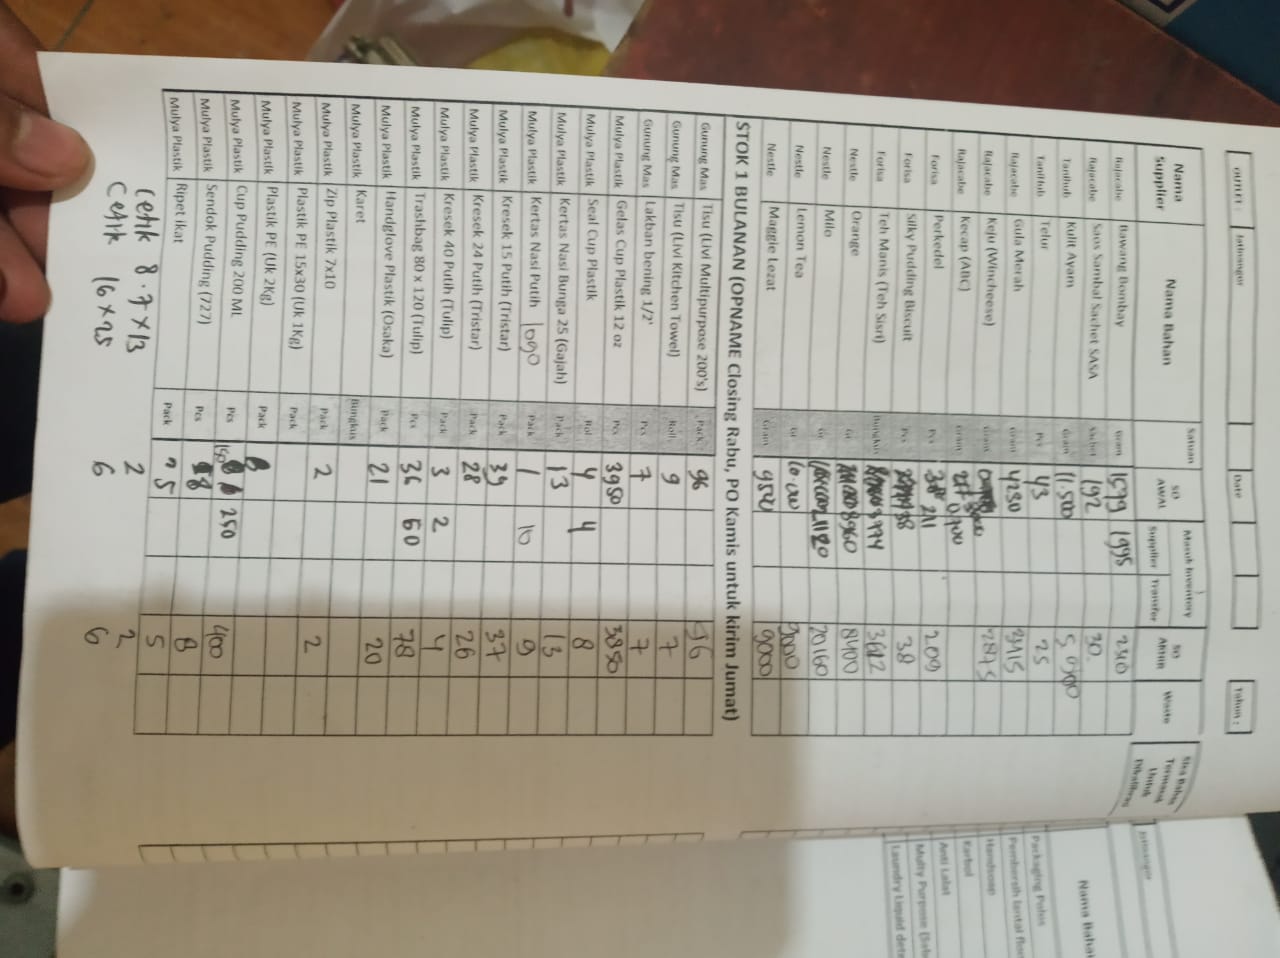 OUTLET : Jatinangor Date Tahun :
Nama Supplier Nama Bahan Satuan SO AWAL Masuk Inventory Supplier Transfer SO AKHIR Waste Sisa Bahan Termasuk Untuk Dikalibrasi
Rajacabe Bawang Bombay Gram 1579 1995 2310
Rajacabe Saos Sambal Sachet SASA Sachet 192 30
Tanihub Kulit Ayam Gram 11.500
Tanihub Telur Pcs 43 25
Rajacabe Gula Merah Gram 4230
Rajacabe Keju (Wincheese) Gram 2875
Rajacabe Kecap (ABC) Gram
Forisa Perkedel Pcs 211 209
Forisa Silky Pudding Biscuit Pcs 38 38
Forisa Teh Manis (Teh Sisri) Bungkus 3774
Nestle Orange Gr 8960 8400
Nestle Milo Gr 21120 20160
Nestle Lemon Tea Gr 10.000 9000
Nestle Maggie Lezat Gram 9500 9000
STOK 1 BULANAN (OPNAME Closing Rabu, PO Kamis untuk kirim Jumat)
Gunung Mas Tisu (Livi Multipurpose 200's) Pack 96 96
Gunung Mas Tisu (Livi Kitchen Towel) Roll 9 7
Gunung Mas Lakban bening 1/2' Pcs 7 7
Mulya Plastik Gelas Cup Plastik 12 oz Pcs 3950 3850
Mulya Plastik Seal Cup Plastik Rol 4 4 8
Mulya Plastik Kertas Nasi Bunga 25 (Gajah) Pack 13 13
Mulya Plastik Kertas Nasi Putih logo Pack 1 10 9
Mulya Plastik Kresek 15 Putih (Tristar) Pack 39 37
Mulya Plastik Kresek 24 Putih (Tristar) Pack 28 26
Mulya Plastik Kresek 40 Putih (Tulip) Pack 3 2 4
Mulya Plastik Trashbag 80 x 120 (Tulip) Pcs 36 60 78
Mulya Plastik Handglove Plastik (Osaka) Pack 21 20
Mulya Plastik Karet Bungkus
Mulya Plastik Zip Plastik 7x10 Pack 2 2
Mulya Plastik Plastik PE 15x30 (Uk 1Kg) Pack
Mulya Plastik Plastik PE (Uk 2Kg) Pack
Mulya Plastik Cup Pudding 200 ML Pcs 150 250 400
Mulya Plastik Sendok Pudding (727) Pcs 8 8
Mulya Plastik Ripet ikat Pack 5 5
Cetik 8.7x13 2 2
Cetik 16x25 6 6
Jatinangor
Nama Bahan
Packaging Polos
Pembersih lantai
Handsoap
Karbol
Anti Lalat
Multy Purpose
Laundry Liquid